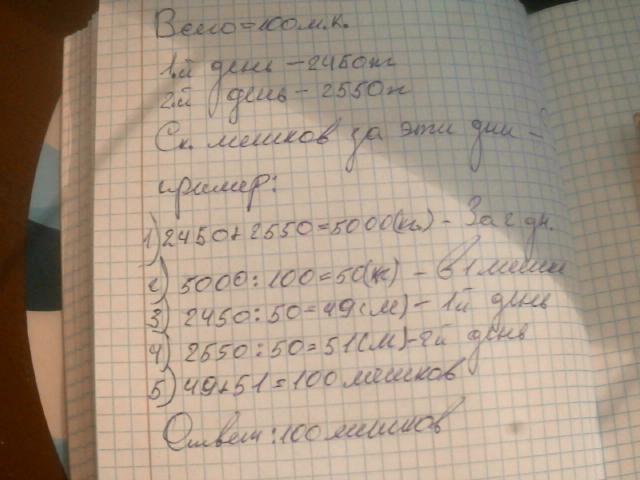 Всего=100м.к.
1.й день - 2450кг
2.й день - 2550кг
Ск. мешков за эти дни -
пример:
1) 2450+2550=5000(кг.) - За 2 дн.
2) 5000:100=50(кг) - в 1 мешке
3) 2450:50=49(м) - 1й день
4) 2550:50=51(м) - 2й день
5) 49+51=100 мешков
Ответ: 100 мешков